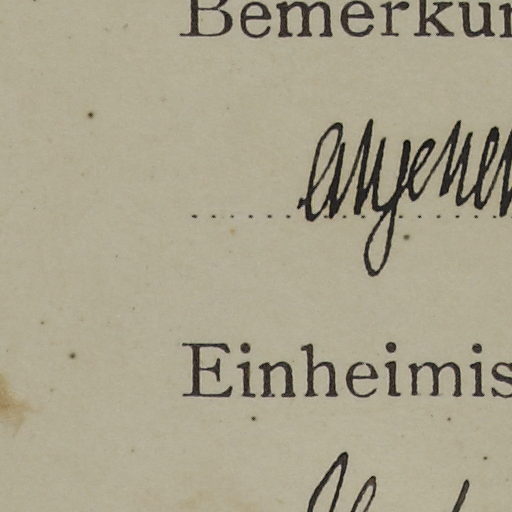 Bemerkun
angenen
Einheimis